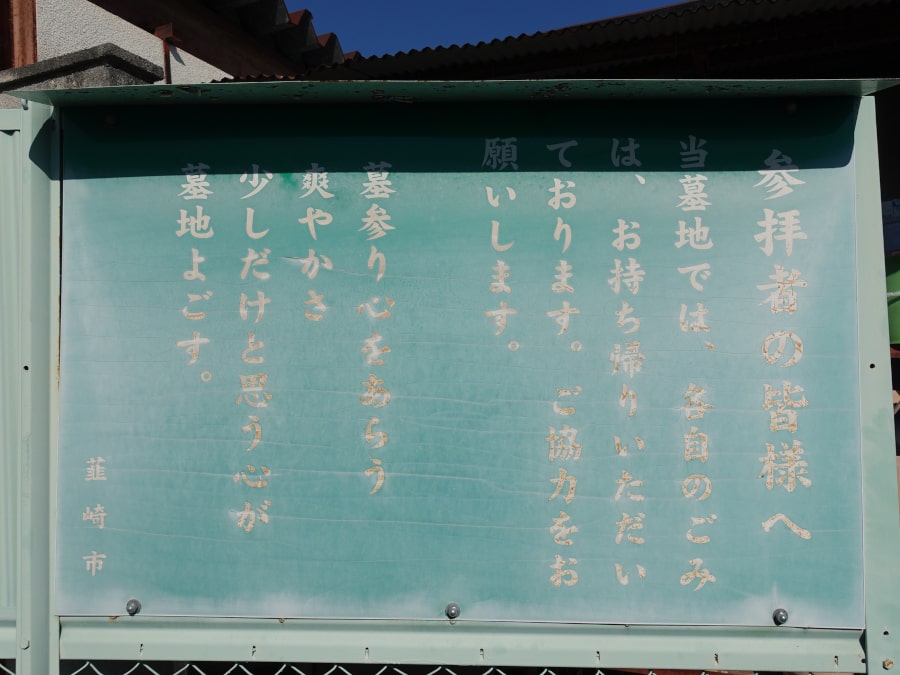 参拝者の皆様へ
当墓地では、各自のごみ
は、お持ち帰りいただい
ております。ご協力をお
願いします。
墓参り心をあらう
爽やかさ
少しだけと思う心が
墓地よごす。
韮崎市